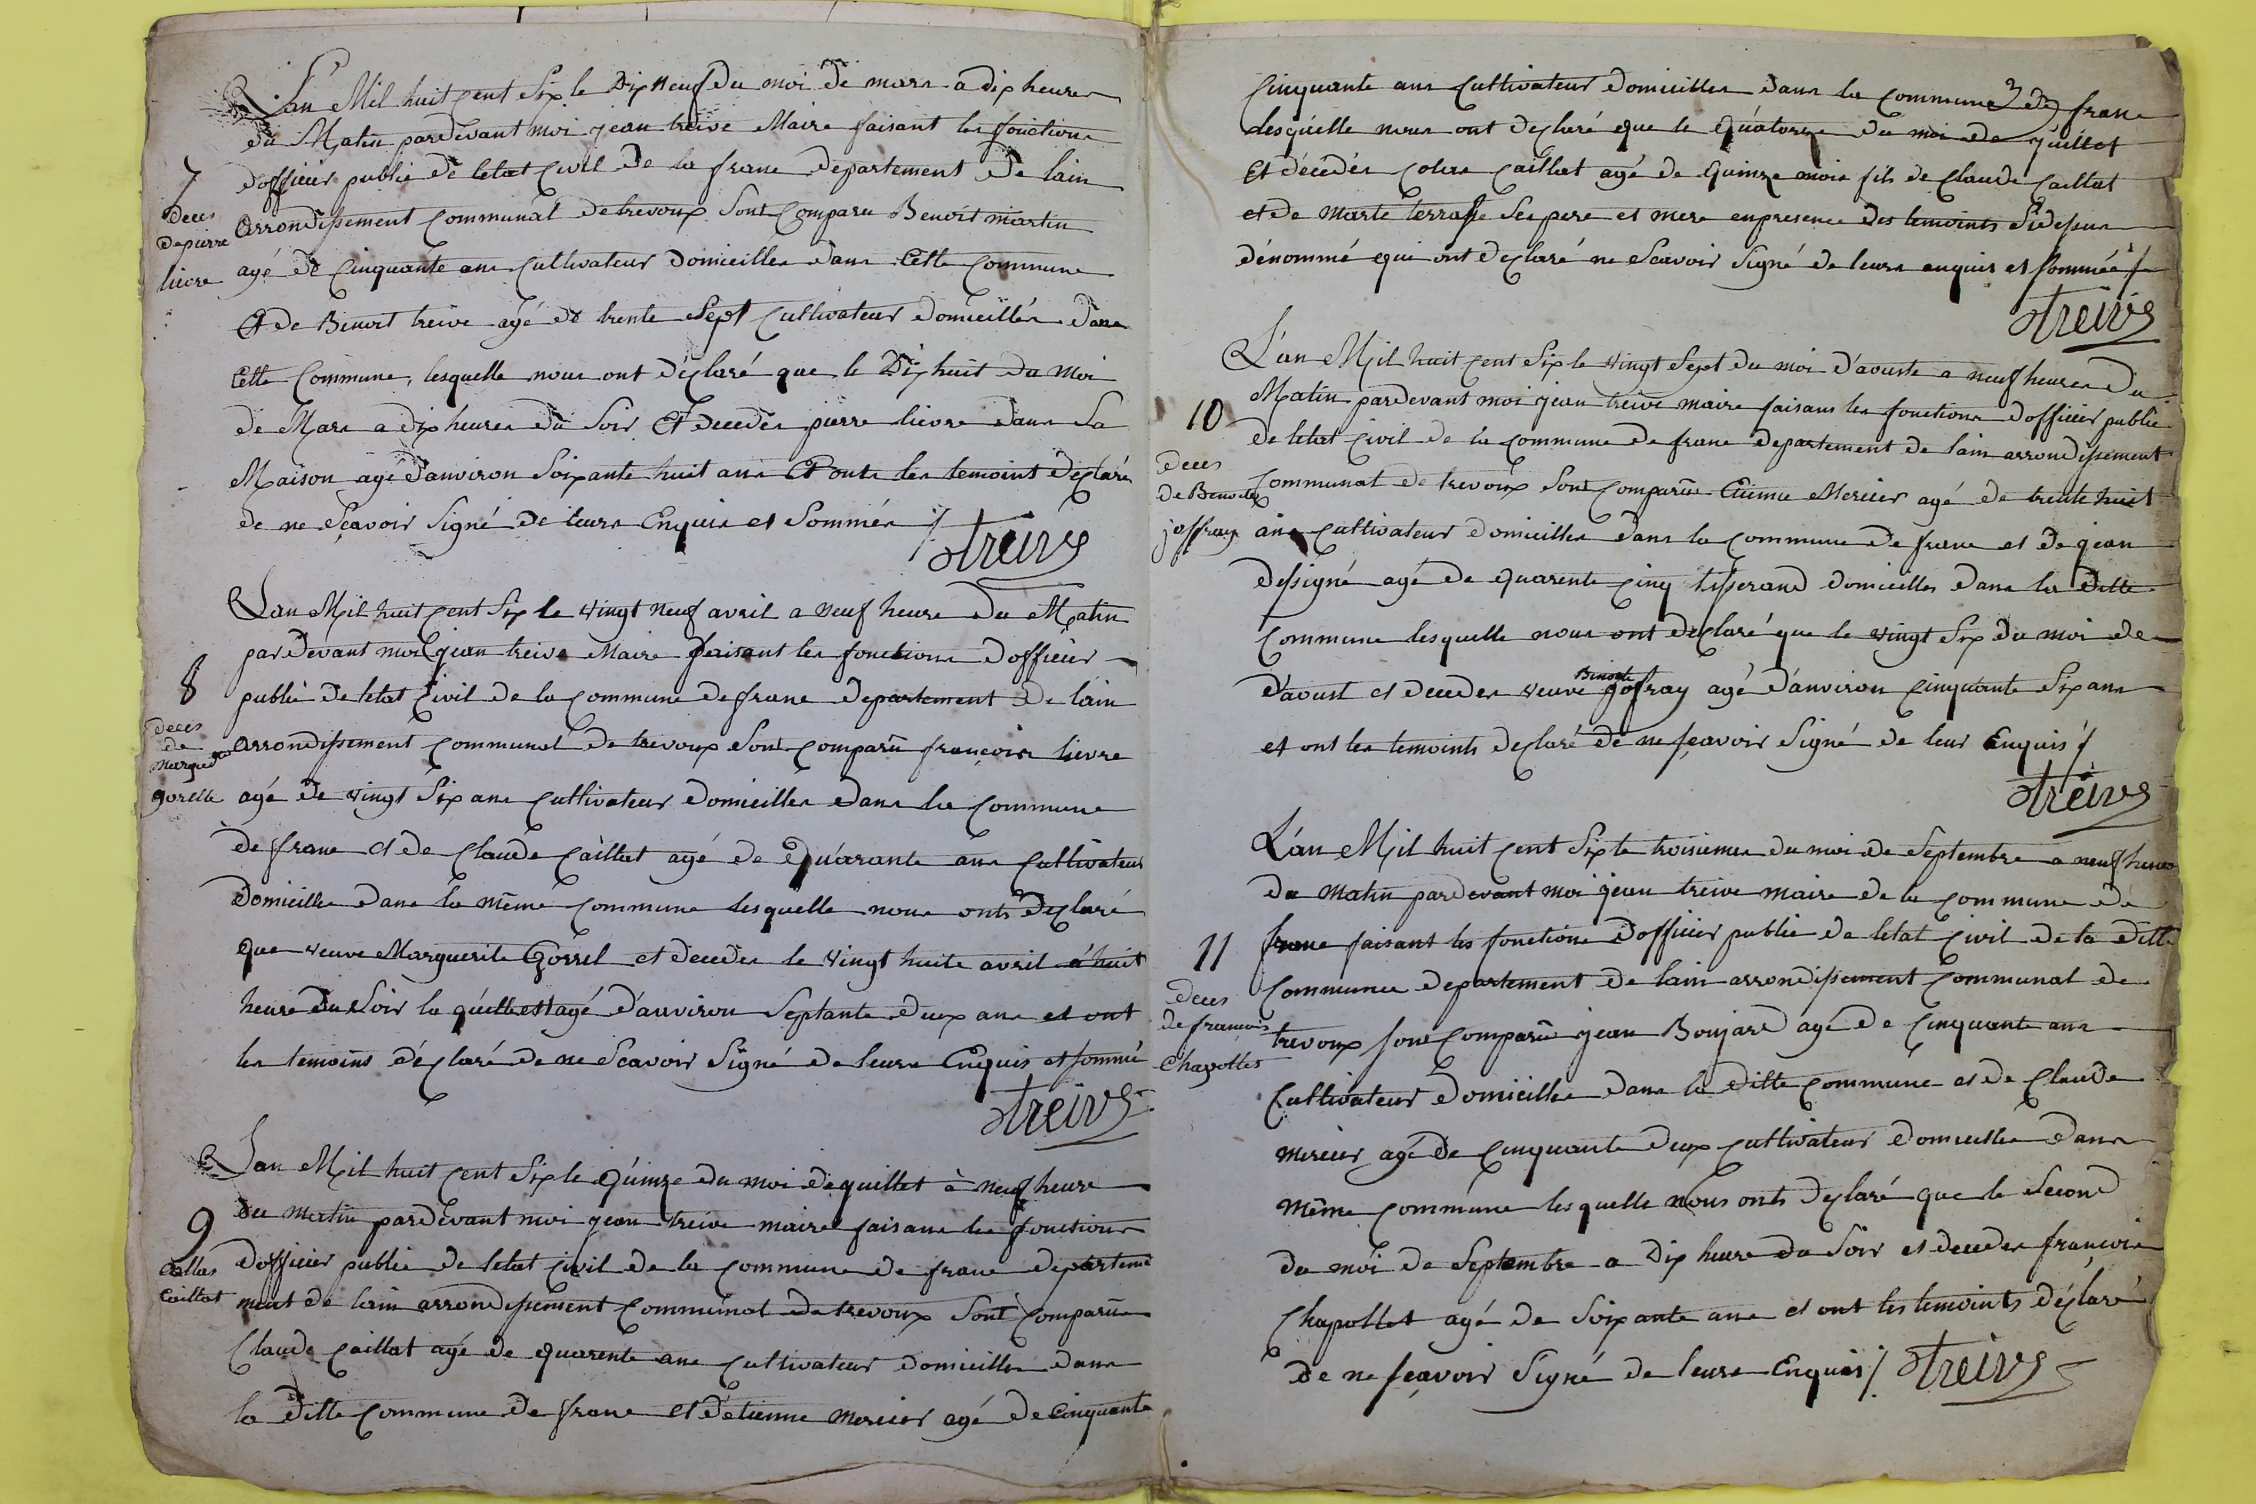 L'an Mil huit cent Six le Dix Neuf Du moi de mars a dix heures
du Matin pardevant moi jean treive Maire faisant les fonctions
7
dofficier public de letat civil de la frans departement de lain
deces
de pierre
lievre
arrondissement communal de trevoux Sont comparu Benoit martin
agé de cinquante ans cultivateur domicilles dans cette commune
et de Benoit treive agé de trente Sept cultivateur domicillés dans
cette commune, lesquelle nous ont déclaré que le Dix huit du Moi
de Mars a dix heures du Soir et decedes pierre lievre dans Sa
Maison agé d'anviron Soixante huit ans et onts les temoint déclarés
de ne Scavoir Signé de leurs Enquis et Sommés
treive
Lan Mil huit cent Six le vingt neuf avril a neuf heure du Matin
par devant moi jean treive Maire faisant les fonctions dofficier
8
public de letat civil de la commune de frans departement de lain
deces
de
margueritte
gorelle
arrondissement communal de trevoux Sont comparu françois lievre
agé de vingt Six ans cultivateur domicilles dans la commune
de frans et de claude caillat agé de Quarante ans cultivateur
domicilles dans la même commune lesquelle nous onts declaré
que veuve Marguerite Gorrel et decedes le vingt huite avril a huit
heure du Soir la quelle est agé d'anviron Septante deux ans et ont
les temoins déclaré de ne Scavoir Signé de leurs Enquis et sommé
treive
Lan Mil huit cent Six le Quinze du moi de quillet à neuf heure
du matin pardevant moi jean treive maire faisans les fonctions
9
Collas
Caillat
dofficier public de letat civil de la commune de frans departeme
ment de lain arrondissement communal de trevoux Sont comparus
Claude caillat agé de quarente ans cultivateur domicilles dans
la ditte commune de frans et d'etienne mercier agé de cinquante
Cinquante ans cultivateur domicilles dans la commune de frans
lesquelle nous ont declaré que le Quatorze du moi de juillet
Et décedés colas caillat agé de Quinze mois fils de claude caillat
et de marte terrasse Ses pere et mere en presence des temoints Sidessus
dénommé qui ont declaré ne Scavoir Signé de leurs enquis et Sommée
treive
L'an Mil huit cent Six le vingt Sept du moi d'aouste a neuf heures du
Matin pardevant moi jean treive maire faisans les fonctions dofficier public
10
de letat civil de la commune de frans departement de lain arrondissement
deces
de Benoite
joffray
communal de trevoux Sont comparus Etienne Mercier agé de trente huit
ans cultivateur domicilles dans la commune de frans et de jean
dessigné agé de quarente cinq tisserand domicilles dans la ditte
commune lesquelle nous ont declaré que le vingt Six du moi de
d'aoust et decedes veuve Binoite jofray agé d'anviron cinquante Six ans
et ont les temoints declaré de ne sçavoir Signé de leur Enquis
treive
L'an Mil huit cent Six le troisiemes du moi de Septembre a neuf heures
du matin par devant moi jean treive maire de la commune de
11
frans faisant les fonctions dofficier public de letat civil de la ditte
commune departement de lain arrondissement communal de
deces
de francois
chapottet
trevoux sont comparu jean Bonjard agé de cinquante ans
cultivateur domicilles dans la ditte commune et de claude
mercier agé de cinquante deux cultivateur domicilles dans
même commune lesquelle nous onts declaré que le Second
du moi de Septembre a dix heure du Soir et decedes francois
Chapottet agé de Soixante ans et ont les temoints déclaré
de ne sçavoir Signé de leurs Enquis treive